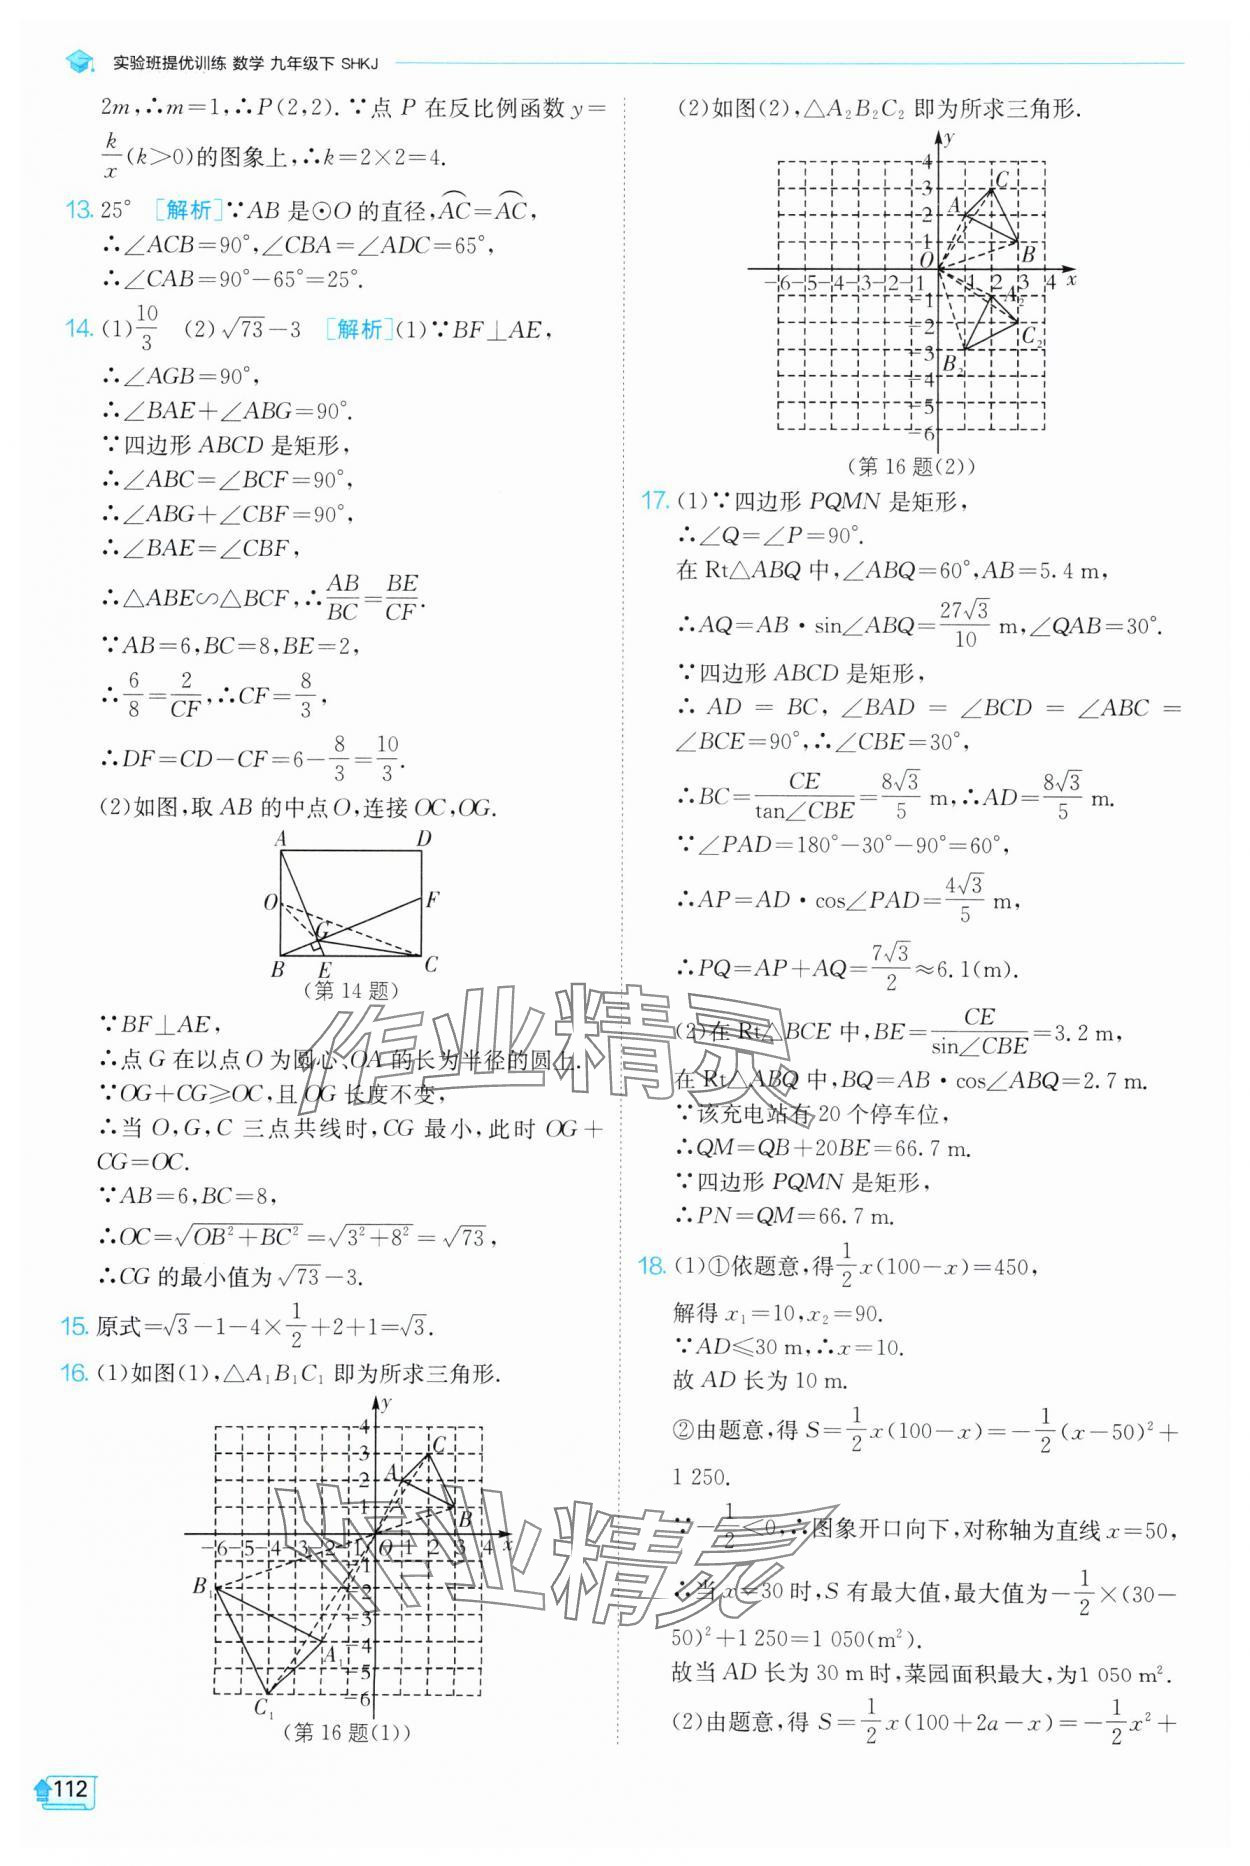 实验班提优训练 数学 九年级下 SHKJ
2m,∴m=1,∴P(2,2).∵点 P 在反比例函数 y=
k/x(k>0)的图象上,∴k=2×2=4.
13. 25° [解析]∵AB 是⊙O 的直径,AC⌢=AC⌢,
∴∠ACB=90°,∠CBA=∠ADC=65°,
∴∠CAB=90°-65°=25°.
14. (1)10/3 (2)√73-3 [解析](1)∵BF⊥AE,
∴∠AGB=90°,
∴∠BAE+∠ABG=90°.
∵四边形 ABCD 是矩形,
∴∠ABC=∠BCF=90°,
∴∠ABG+∠CBF=90°,
∴∠BAE=∠CBF,
∴△ABE∽△BCF,∴AB/BC=BE/CF.
∵AB=6,BC=8,BE=2,
∴6/8=2/CF,∴CF=8/3,
∴DF=CD-CF=6-8/3=10/3.
(2)如图,取 AB 的中点O,连接 OC,OG.
A D
O F
G
B E C
(第 14 题)
∵BF⊥AE,
∴点 G 在以点 O 为圆心、OA 的长为半径的圆上.
∵OG+CG≥OC,且 OG 长度不变,
∴当 O,G,C 三点共线时,CG 最小,此时 OG+
CG=OC.
∵AB=6,BC=8,
∴OC=√(OB²+BC²)=√(3²+8²)=√73,
∴CG 的最小值为√73-3.
15. 原式=√3-1-4×1/2+2+1=√3.
16. (1)如图(1),△A₁B₁C₁ 即为所求三角形.
y
4
3 C
2 A
1 B
-6-5-4-3-2-1 O 1 2 3 4 x
-1
B₁ -2
-3
-4 A₁
-5
C₁ -6
(第 16 题(1))
(2)如图(2),△A₂B₂C₂ 即为所求三角形.
y
4
3 C
2 A
1 B
O
-6-5-4-3-2-1 1 2 3 4 x
-1 A₂
-2 C₂
-3 B₂
-4
-5
-6
(第 16 题(2))
17. (1)∵四边形 PQMN 是矩形,
∴∠Q=∠P=90°.
在 Rt△ABQ 中,∠ABQ=60°,AB=5.4 m,
∴AQ=AB·sin∠ABQ=27√3/10 m,∠QAB=30°.
∵四边形 ABCD 是矩形,
∴ AD = BC, ∠BAD = ∠BCD = ∠ABC =
∠BCE=90°,∴∠CBE=30°,
∴BC=CE/tan∠CBE=8√3/5 m,∴AD=8√3/5 m.
∵∠PAD=180°-30°-90°=60°,
∴AP=AD·cos∠PAD=4√3/5 m,
∴PQ=AP+AQ=7√3/2≈6.1(m).
(2)在 Rt△BCE 中,BE=CE/sin∠CBE=3.2 m,
在 Rt△ABQ 中,BQ=AB·cos∠ABQ=2.7 m.
∵该充电站有 20 个停车位,
∴QM=QB+20BE=66.7 m.
∵四边形 PQMN 是矩形,
∴PN=QM=66.7 m.
18. (1)①依题意,得1/2x(100-x)=450,
解得 x₁=10,x₂=90.
∵AD≤30 m,∴x=10.
故 AD 长为 10 m.
②由题意,得 S=1/2x(100-x)=-1/2(x-50)²+
1 250.
∵-1/2<0,∴图象开口向下,对称轴为直线 x=50,
∴当 x=30 时,S 有最大值,最大值为-1/2×(30-
50)²+1 250=1 050(m²).
故当 AD 长为 30 m 时,菜园面积最大,为1 050 m².
(2)由题意,得 S=1/2x(100+2a-x)=-1/2x²+
112
作业精灵
作业精灵